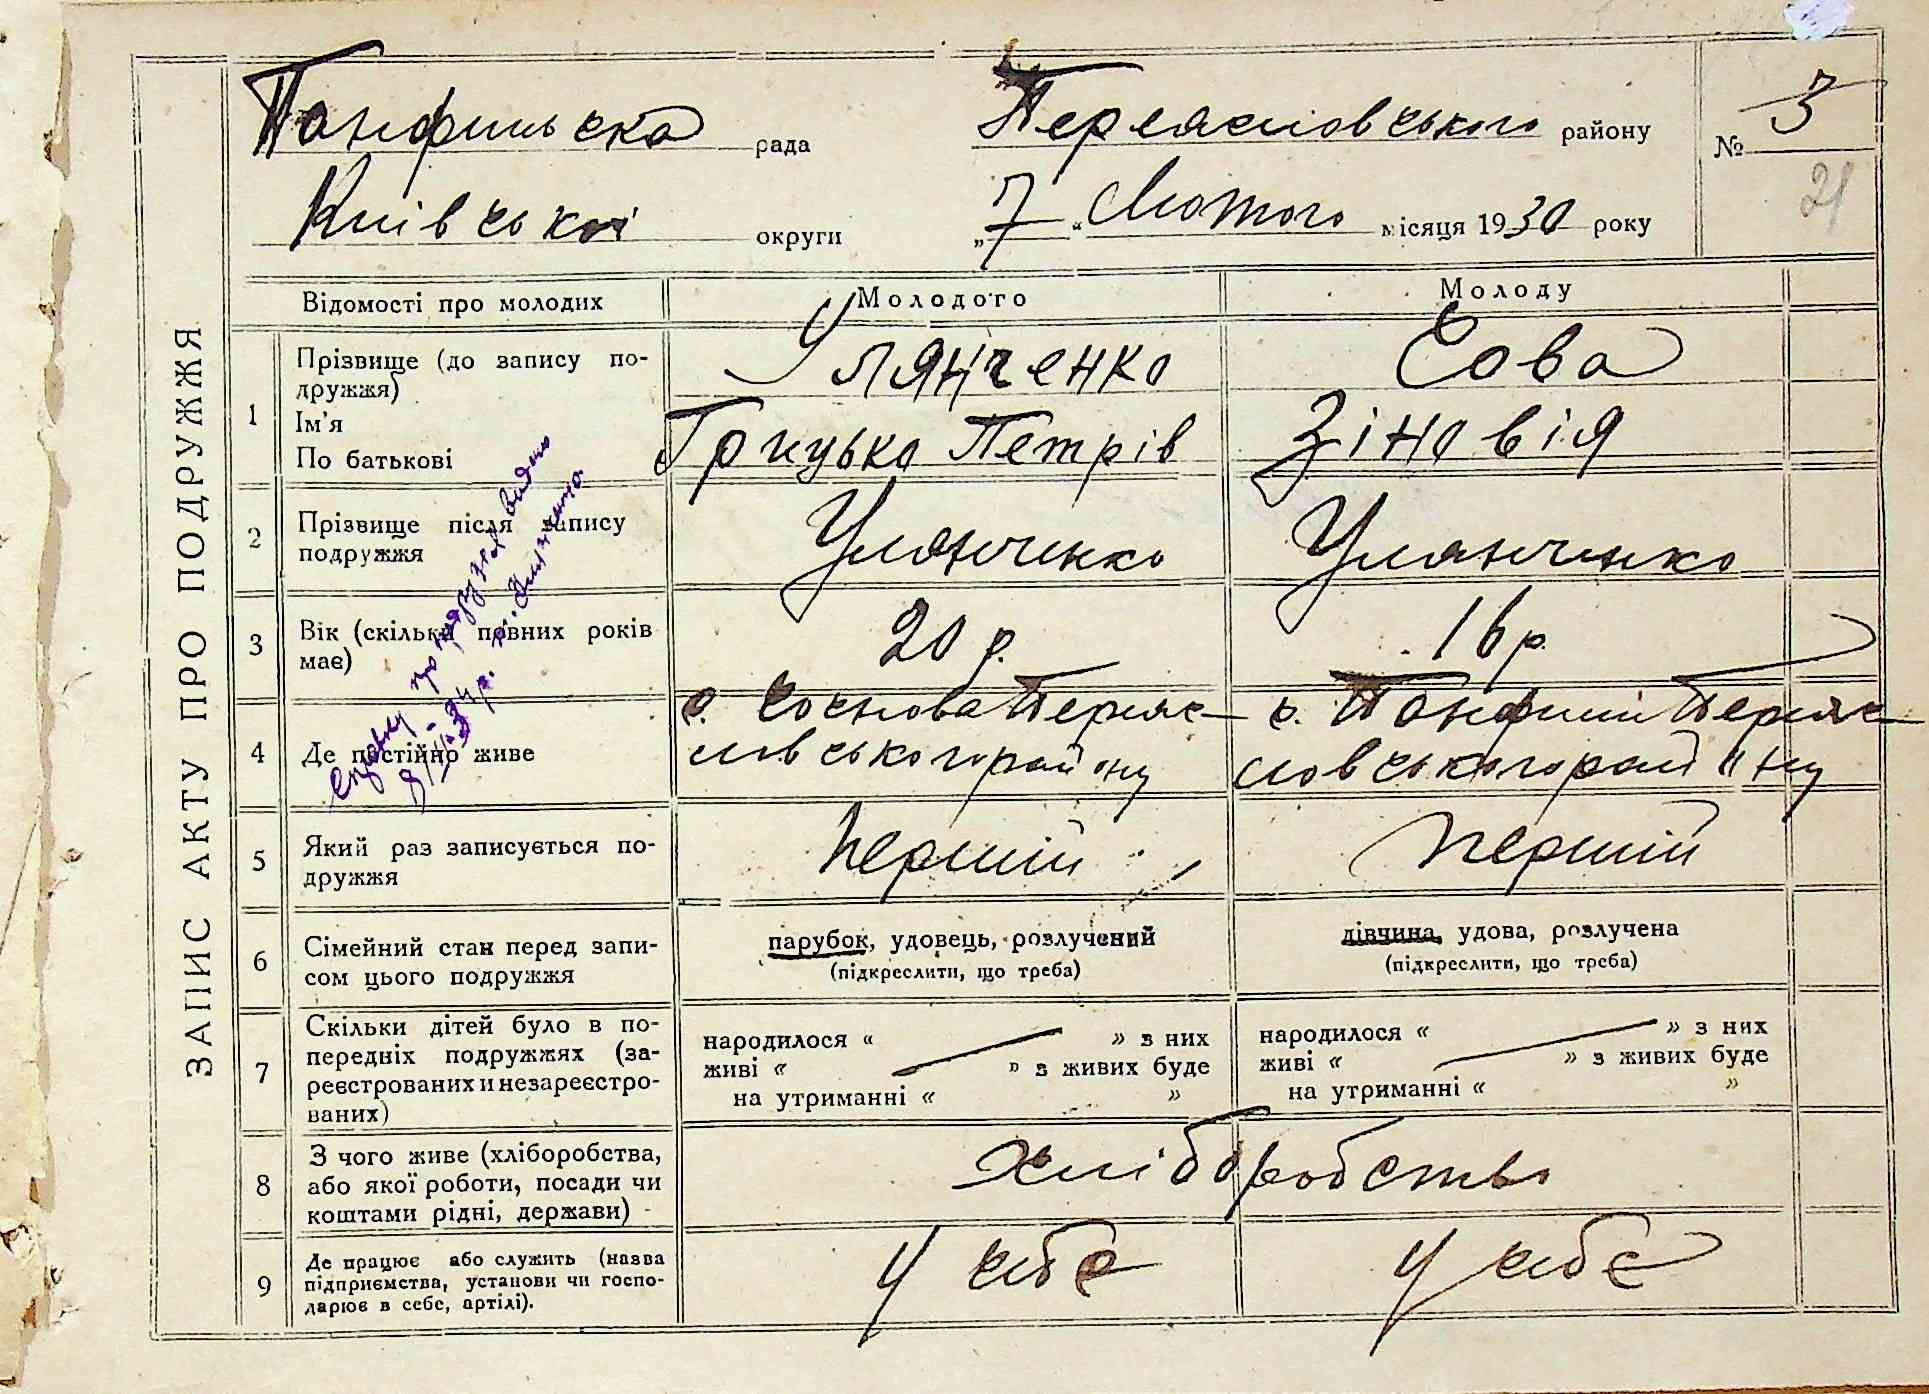 ЗАПИС АКТУ ПРО ПОДРУЖЖЯ
Панфильска рада
Переяслівського району
№ 3
21
Київської округи
„7“ Лютого місяця 1930 року
Відомості про молодих
Молодого
Молоду
1
Прізвище (до запису по-
дружжя)
Ім'я
По батькові
Улянченко
Грицько Петрів
Сова
Зіновія
2
Прізвище після запису
подружжя
Улянченко
Улянченко
3
Вік (скільки повних років
має)
20 р.
16 р.
4
Де постійно живе
с. Соснова Переяс-
лівського району
с. Панфили Переяс-
лівського району
5
Який раз записується по-
дружжя
перший
перший
6
Сімейний стан перед запи-
сом цього подружжя
парубок, удовець, розлучений
(підкреслити, що треба)
дівчина, удова, розлучена
(підкреслити, що треба)
7
Скільки дітей було в по-
передніх подружжях (за-
реєстрованих и незареєстро-
ваних)
народилося « » з них
живі « » з живих буде
на утриманні « »
народилося « » з них
живі « » з живих буде
на утриманні « »
8
З чого живе (хліборобства,
або якої роботи, посади чи
коштами рідні, держави)
хліборобство
9
Де працює або служить (назва
підприємства, установи чи госпо-
дарює в себе, артілі).
у себе
у себе